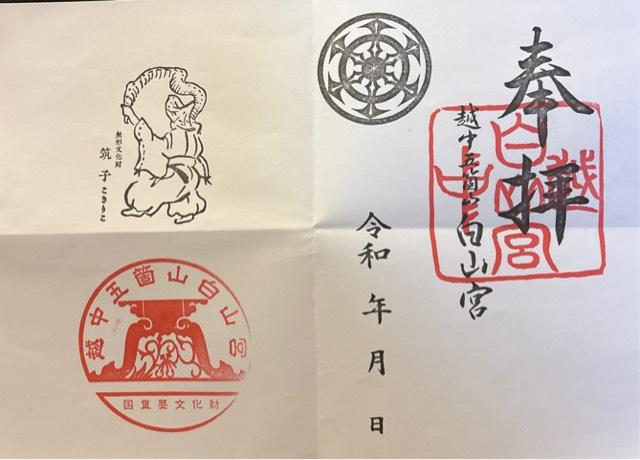 奉拝
越中五箇山白山宮
越中
白山宮
令和 年 月 日
無形文化財
筑子 こきりこ
越中五箇山白山宮
国重要文化財